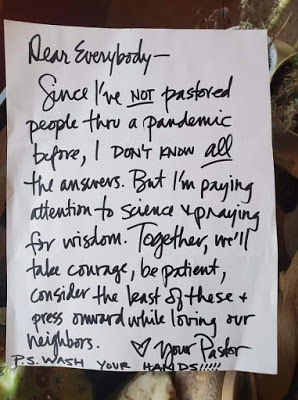 Dear Everybody—
Since I've NOT pastored
people thru a pandemic
before, I DON'T KNOW all
the answers. But I'm paying
attention to science + praying
for wisdom. Together, we'll
take courage, be patient,
consider the least of these +
press onward while loving our
neighbors. ♡ Your Pastor
P.S. WASH YOUR HANDS!!!!!